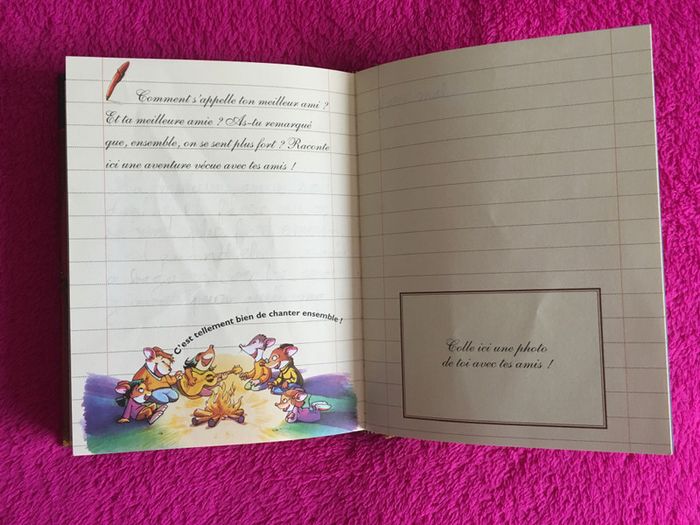 Comment s'appelle ton meilleur ami ?
Et ta meilleure amie ? As-tu remarqué
que, ensemble, on se sent plus fort ? Raconte
ici une aventure vécue avec tes amis !
C'est tellement bien de chanter ensemble !
Colle ici une photo
de toi avec tes amis !